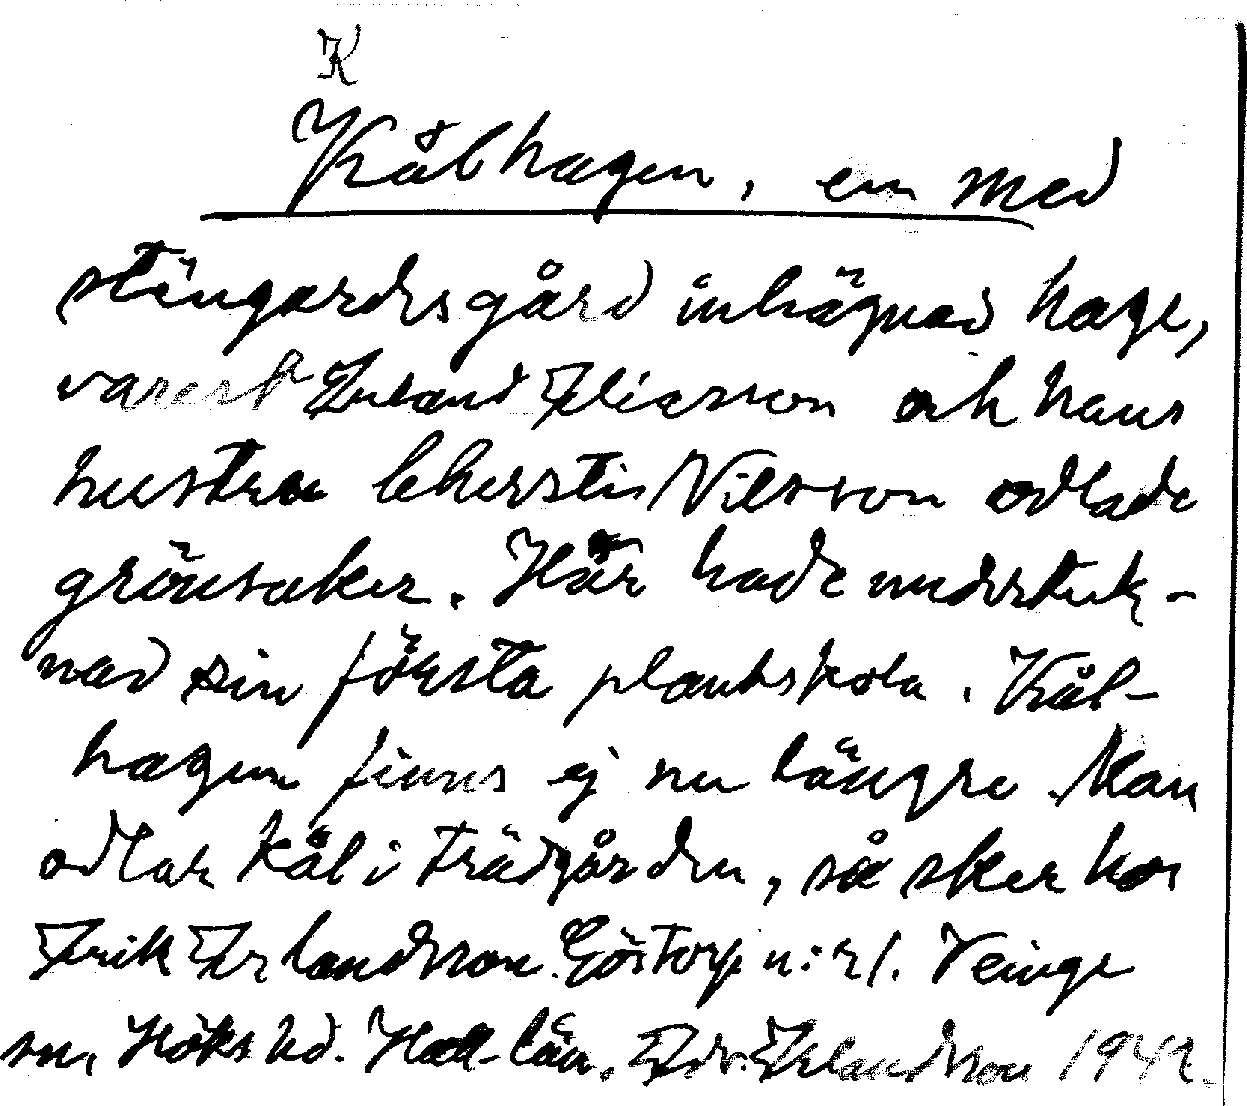 K
Kålhagen, en med
stengärdsgård inhägnad hage,
varest Erland Eliasson och hans
hustru Kjersti Nilsson odlade
grönsaker. Här hade undertek-
nad sin första plantskola. Kål-
hagen finns ej nu längre. Man
odlar kål i trädgården, så sker hos
Erik Erlandsson Göstorp n:r 1. Veinge
sn, Höks hd. Hall. län. Edv. Erlandsson 1942.